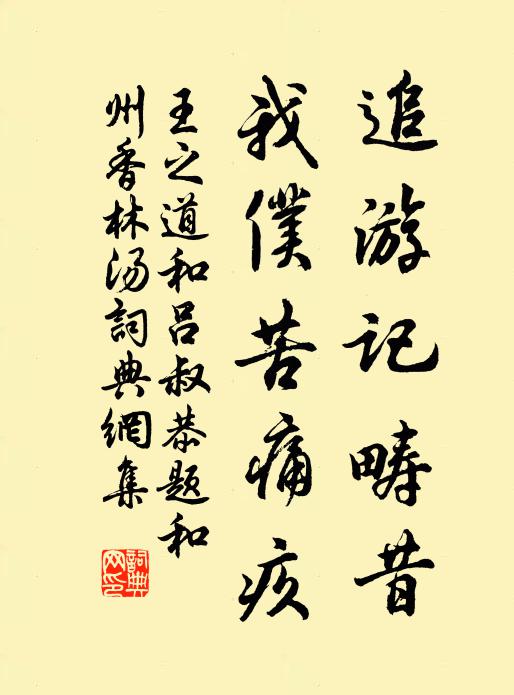 追游记畴昔
我仆苦痡疚
王之道和吕叔恭题和
州香林汤词典网集
词典网印